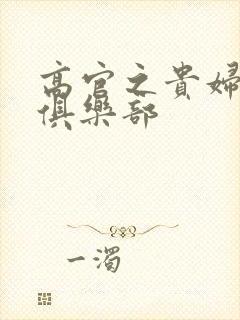 高官之貴婦
俱樂部
一濁